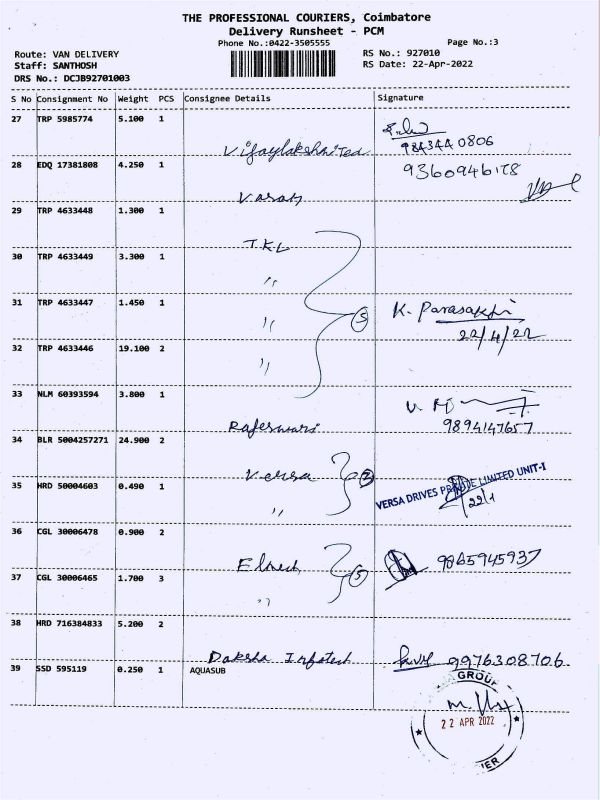 THE PROFESSIONAL COURIERS, Coimbatore
Delivery Runsheet - PCM
Phone No.:0422-3505555
Page No.:3
Route: VAN DELIVERY
RS No.: 927010
Staff: SANTHOSH
RS Date: 22-Apr-2022
DRS No.: DCJB92701003
S No Consignment No Weight PCS Consignee Details Signature
27 TRP 5985774 5.100 1
984344 0806
28 EDQ 17381808 4.250 1
9360946178
29 TRP 4633448 1.300 1
T.K.L
30 TRP 4633449 3.300 1
"
31 TRP 4633447 1.450 1
" 5 K. Parasakthi
22/4/22
32 TRP 4633446 19.100 2
"
33 NLM 60393594 3.800 1
Rajeswari 9894147657
34 BLR 5004257271 24.900 2
Versa
35 HRD 50004603 0.490 1
" VERSA DRIVES PRIVATE LIMITED UNIT-I
36 CGL 30006478 0.900 2
9865945937
37 CGL 30006465 1.700 3
" 5
38 HRD 716384833 5.200 2
Daksha Infotech 9976308706
39 SSD 595119 0.250 1 AQUASUB
GROUP
22 APR 2022